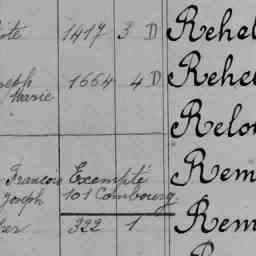 1417 3 D Rehel
Joseph 1664 4 D Rehe
Marie
Relou
François Exempté Rem
Joseph 101 Combourg
322 1 Rem